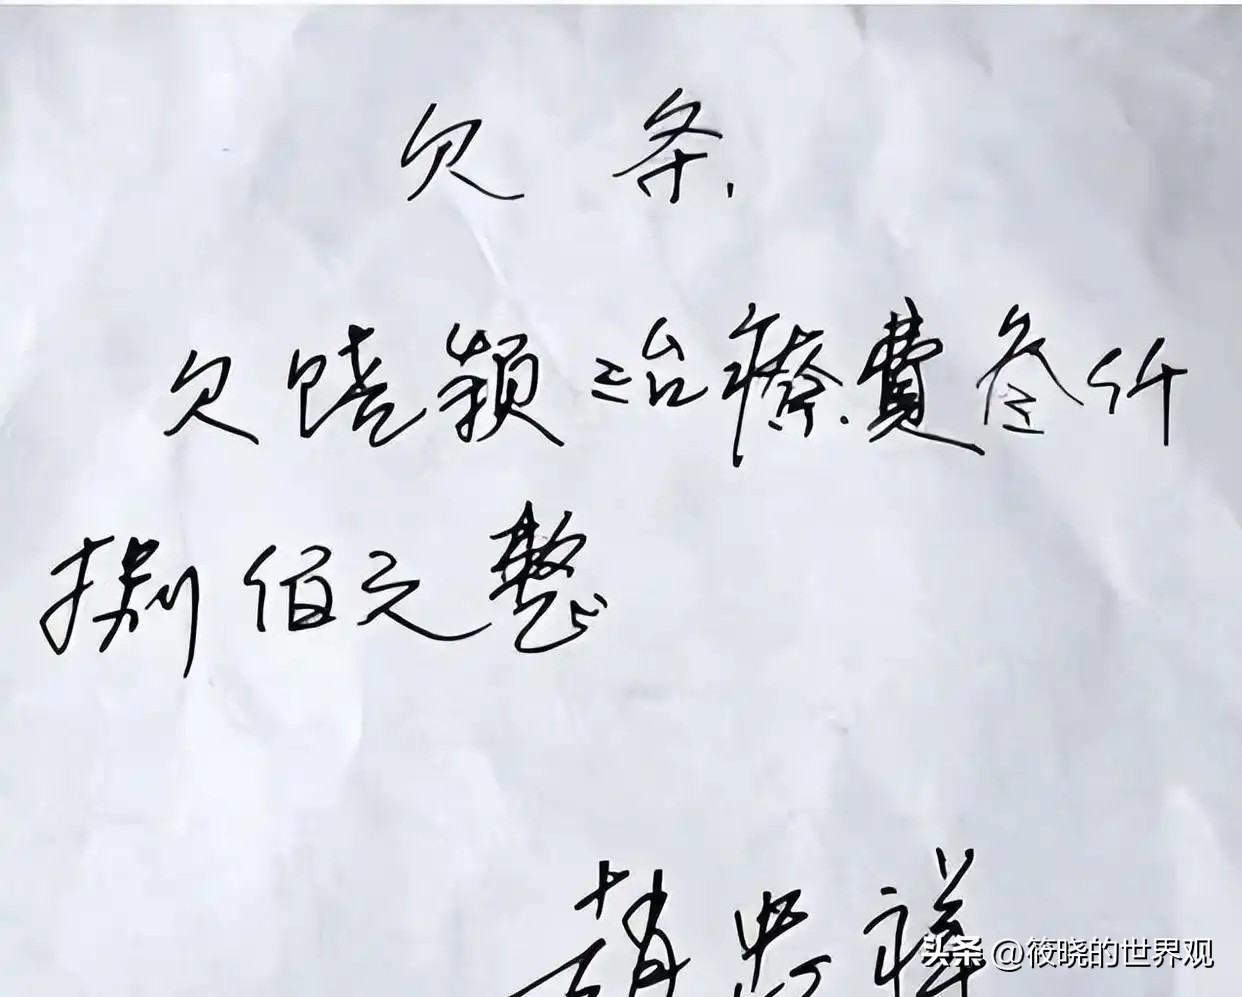 欠条.
欠饶颖治療.費叁仟
捌佰元整
趙忠祥
头条 @筱晓的世界观